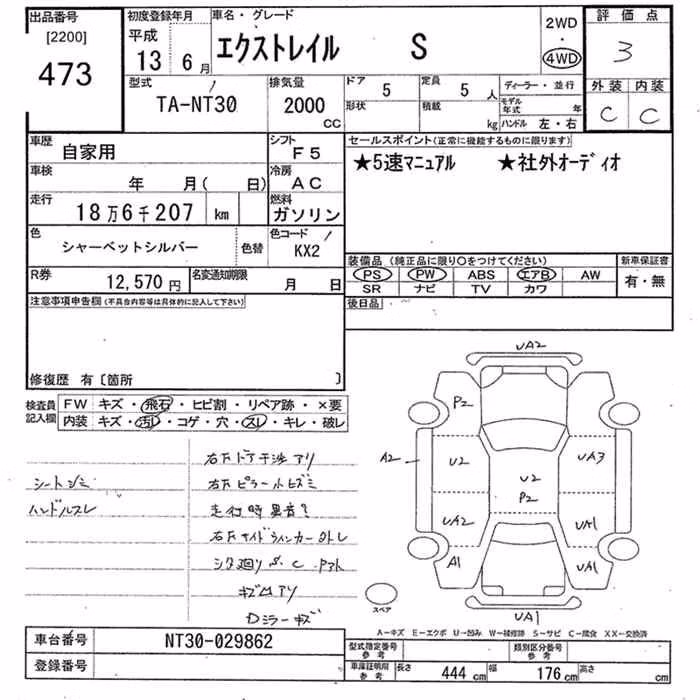 出品番号
[2200]
473
初度登録年月
平成
13 6月
車名・グレード
エクストレイル S
2WD
・
4WD
評価点
3
外装 内装
C C
型式
TA-NT30
排気量
2000
CC
ドア
5
定員
5 人
形状
積載
kg
ディーラー・並行
モデル年式 年
ハンドル 左・右
車歴
自家用
シフト
F5
車検
年 月( 日)
冷房
AC
走行
18万6千207 km
燃料
ガソリン
色
シャーベットシルバー
色替
色コード
KX2
R券
12,570円
名変通知期限
月 日
セールスポイント(正常に機能するものに限ります)
★5速マニュアル ★社外オーディオ
装備品(純正品に限り○をつけてください)
PS PW ABS エアB AW
SR ナビ TV カワ
新車保証書
有・無
後日品
注意事項申告欄(不具合内容等は具体的に記入して下さい)
修復歴 有〔箇所 〕
検査員
記入欄
FW キズ・飛石・ヒビ割・リペア跡・×要
内装 キズ・汚レ・コゲ・穴・スレ・キレ・破レ
シートシミ
ハンドルスレ
右Fドア干渉アリ
右Fピラー小ヒズミ
走行時異音?
右Fサイドウィンカー外レ
シタ廻りS.C
キズ凹アリ
Dミラーキズ
UA2
P2
A2
U2
UA3
U2
P2
UA2
UA1
A1
UA1
UA1
スペア
A—キズ E—エクボ U—凹み W—補修跡 S—サビ C—腐食 XX—交換済
車台番号
NT30-029862
登録番号
型式指定番号
参考
類別区分番号
参考
車庫証明用
参考
長さ 444 cm 幅 176 cm 高さ cm